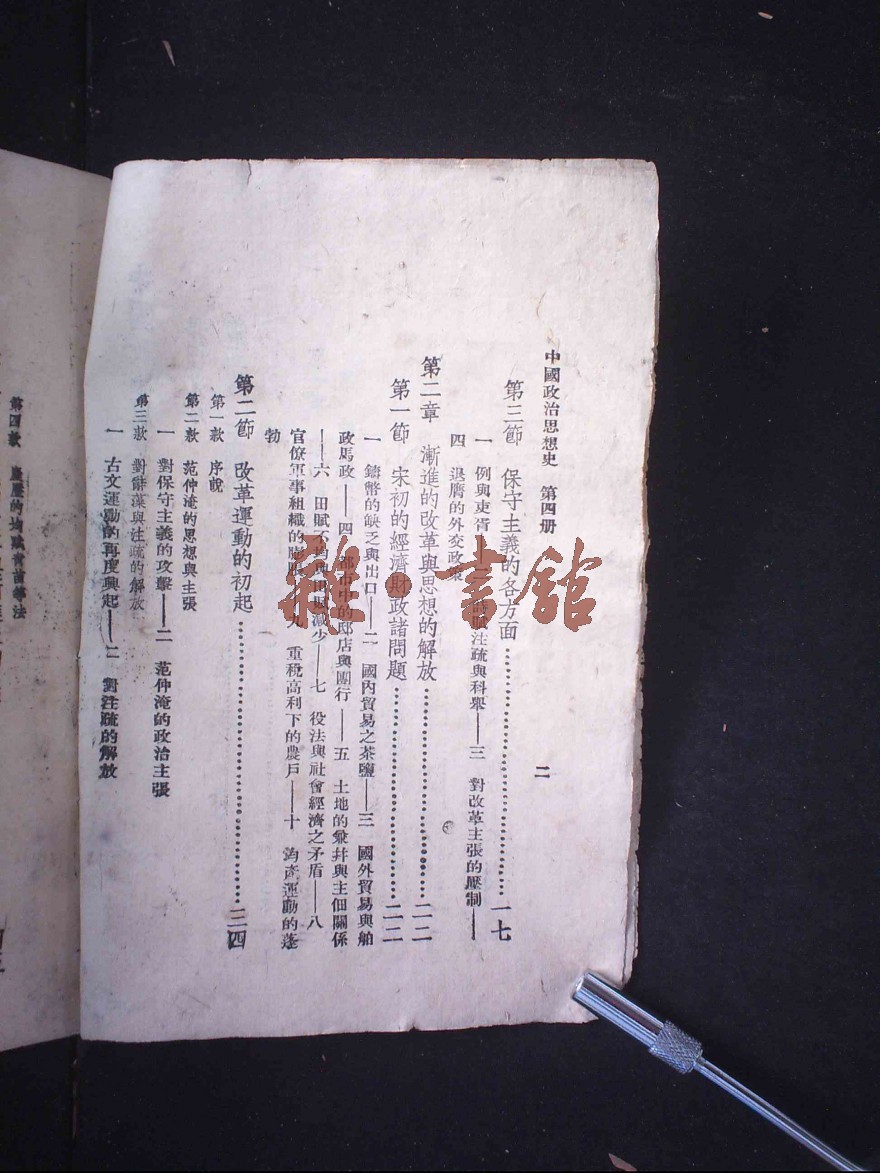 中國政治思想史 第四册
二
第三節 保守主義的各方面……一七
一 例與吏胥—— 注疏與科舉——三 對改革主張的壓制——
四 退屑的外交政策
第二章 漸進的改革與思想的解放……二二
第一節 宋初的經濟財政諸問題……二二
一 鑄幣的缺乏與出口——二 國內貿易之茶鹽——三 國外貿易與舶
政馬政——四 都市中的邸店與團行——五 土地的兼井與主佃關係
——六 田賦不均與田賦減少——七 役法與社會經濟之矛盾——八
官僚軍事組織的膨脹 九 重稅高利下的農戶——十 均產運動的蓬
勃
第二節 改革運動的初起……三四
第一款 序說
第二款 范仲淹的思想與主張
一 對保守主義的攻擊——二 范仲淹的政治主張
第三款 對辭藻與注疏的解放
一 古文運動的再度興起——二 對注疏的解放
第四款 慶曆的均賦青苗等法
雜·書館